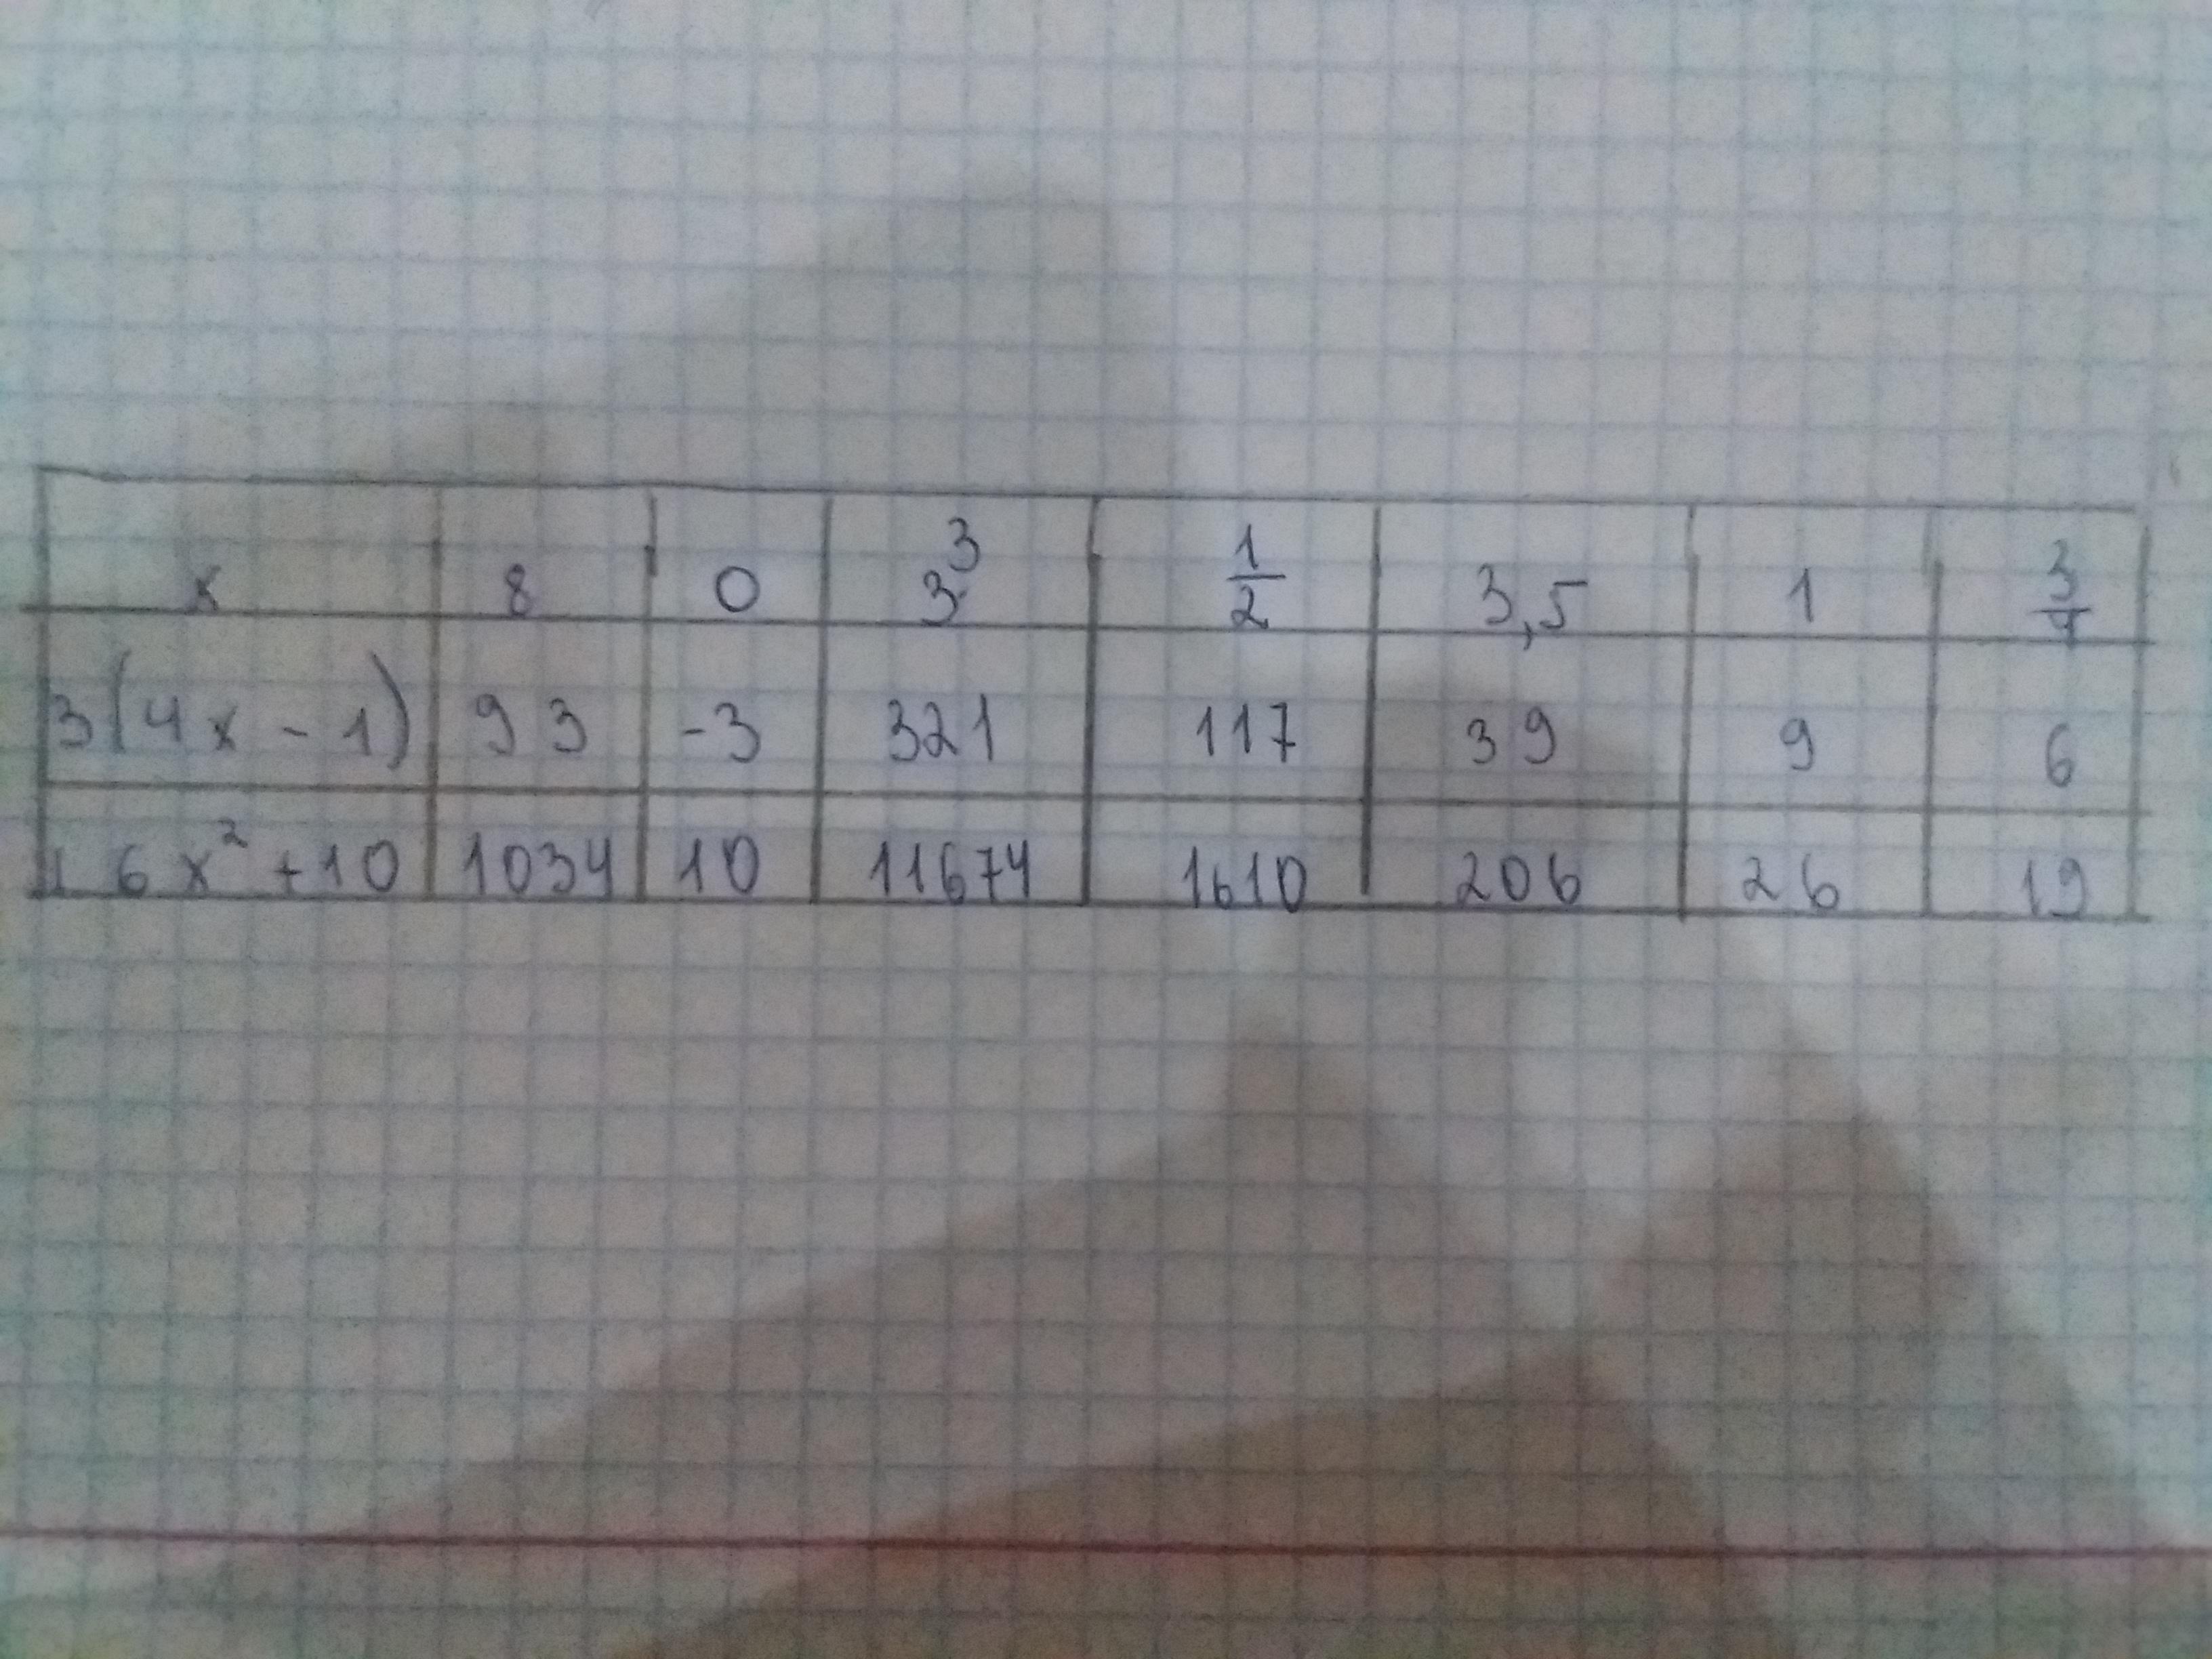 x 8 0 3³ 1/2 3,5 1 3/4
3(4x - 1) 93 -3 321 117 39 9 6
16x² + 10 1034 10 11674 1610 206 26 19